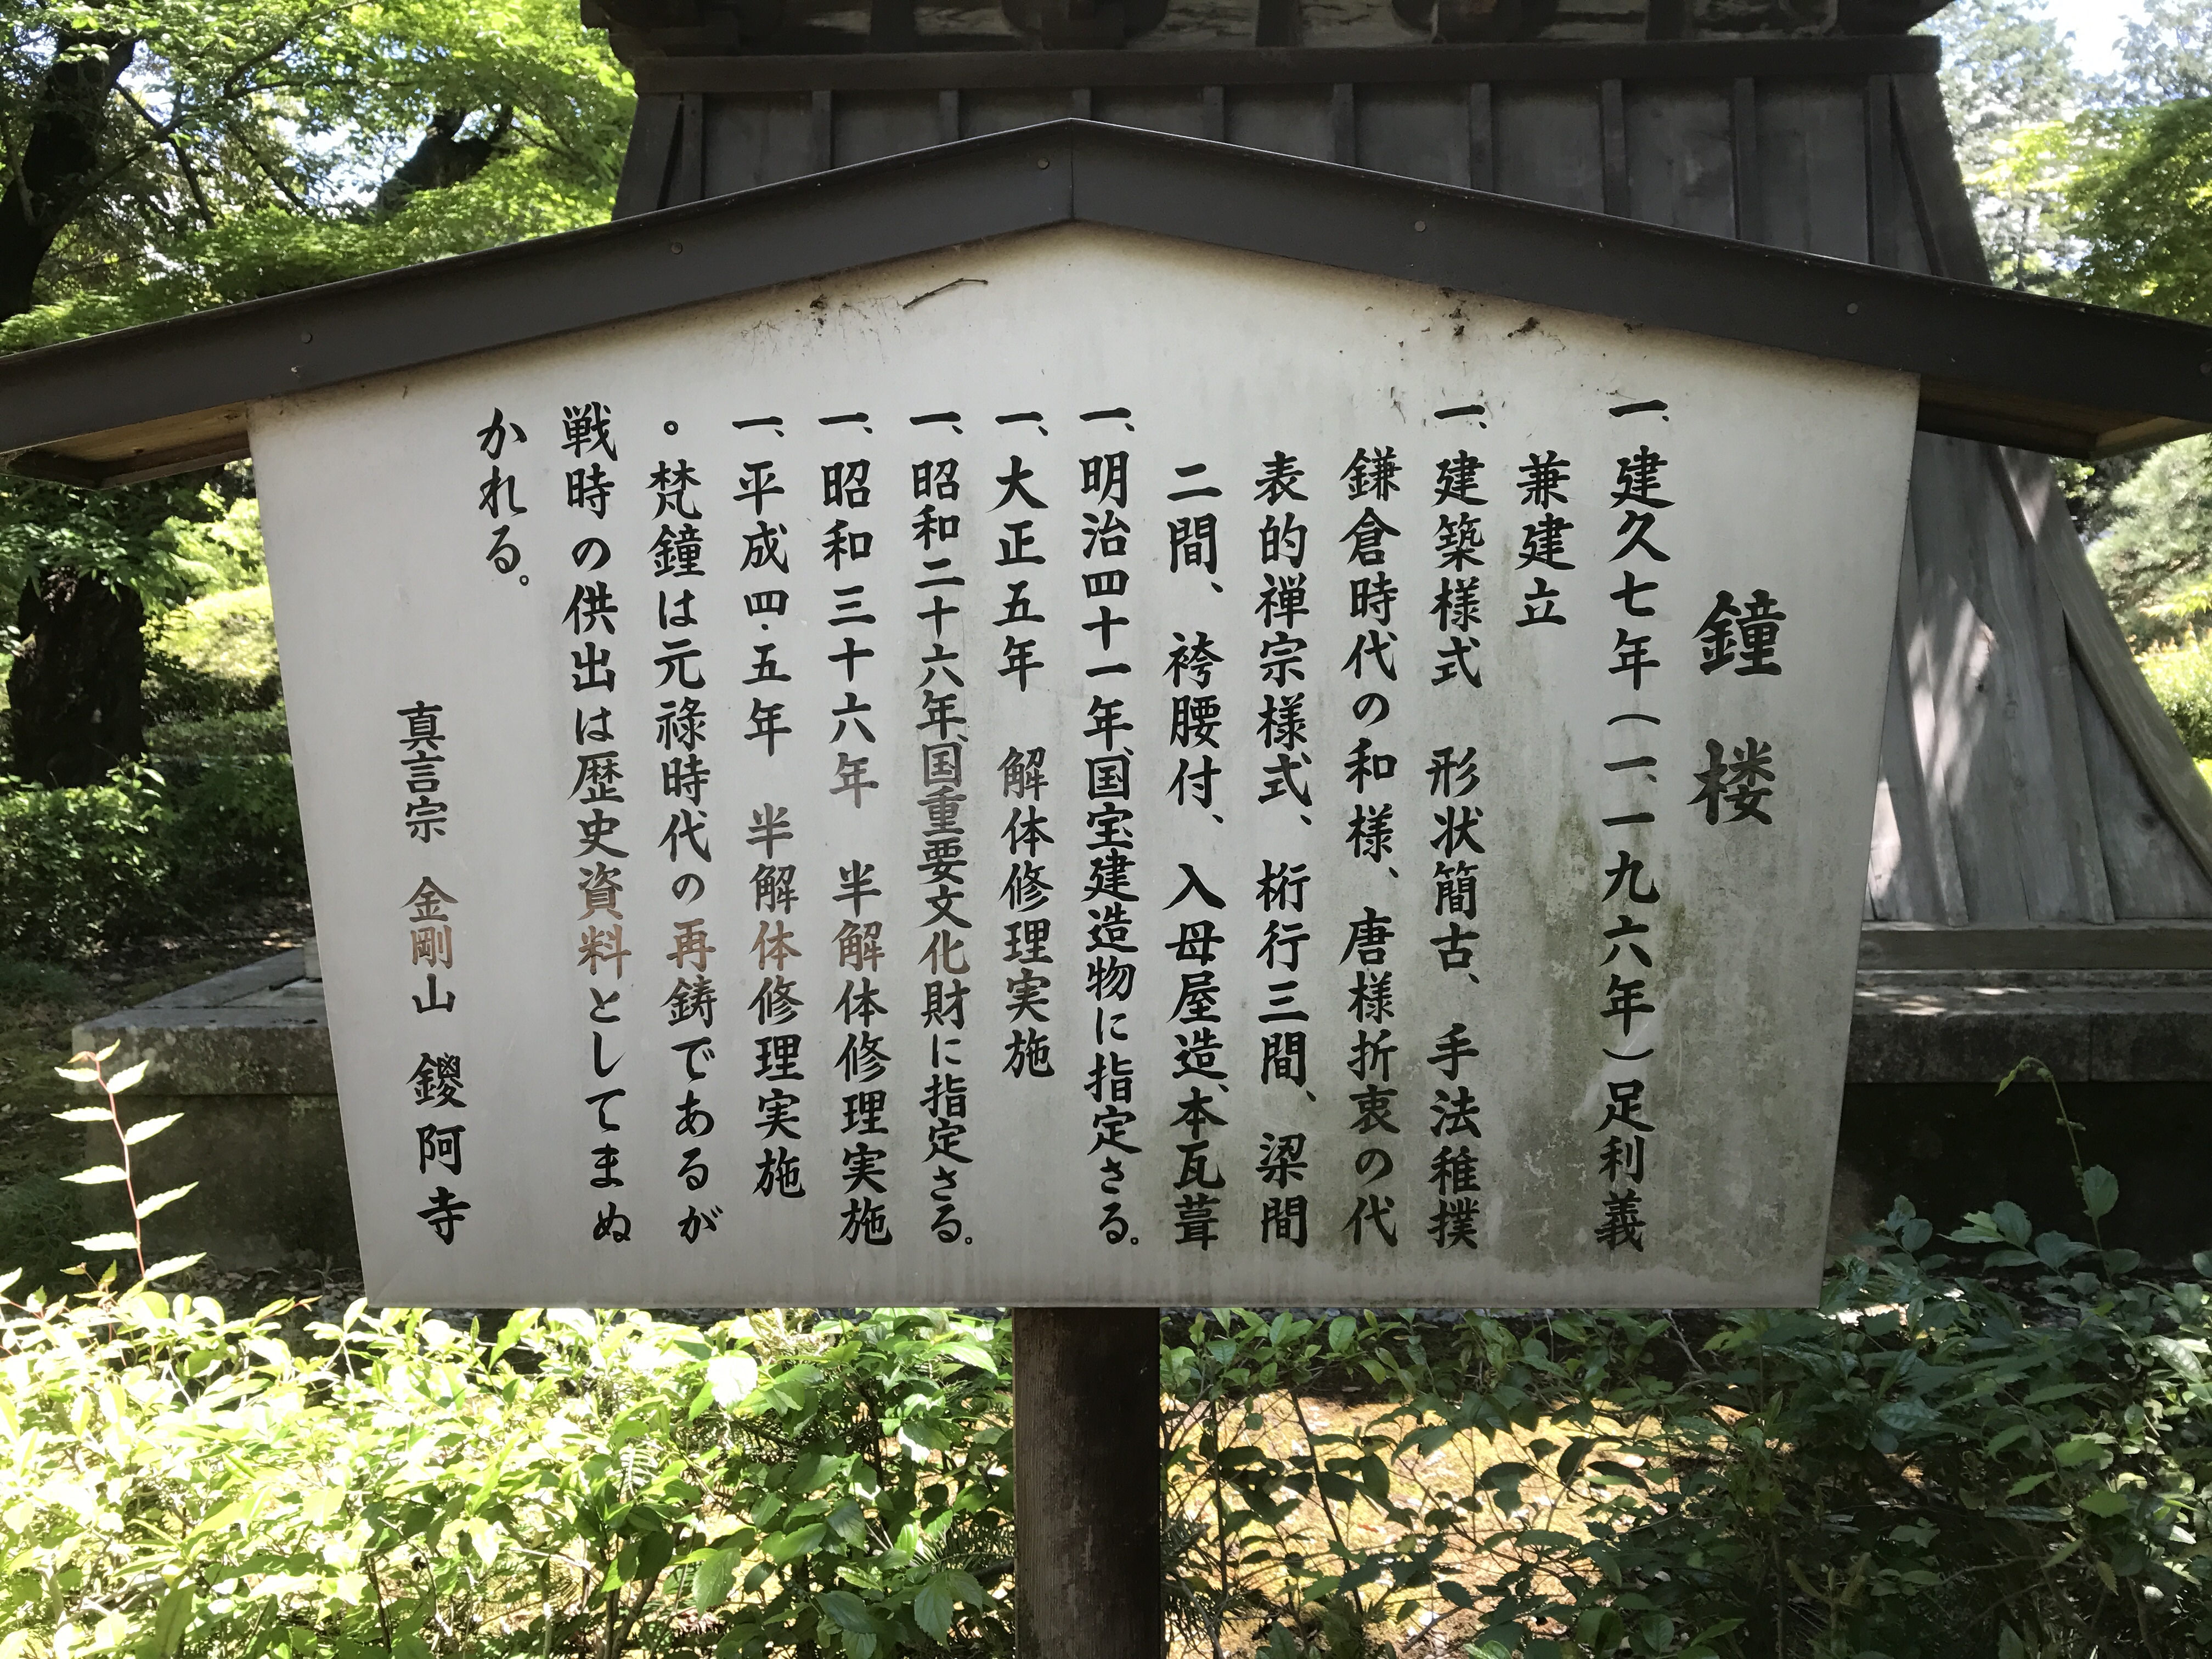 鐘楼
一、建久七年(一、一九六年)足利義
兼建立
一、建築様式 形状簡古、手法稚撲
鎌倉時代の和様、唐様折衷の代
表的禅宗様式、桁行三間、梁間
二間、袴腰付、入母屋造、本瓦葺
一、明治四十一年、国宝建造物に指定さる。
一、大正五年 解体修理実施
一、昭和二十六年、国重要文化財に指定さる。
一、昭和三十六年 半解体修理実施
一、平成四・五年 半解体修理実施
。梵鐘は元祿時代の再鋳であるが
戦時の供出は歴史資料としてまぬ
かれる。
真言宗 金剛山 鑁阿寺